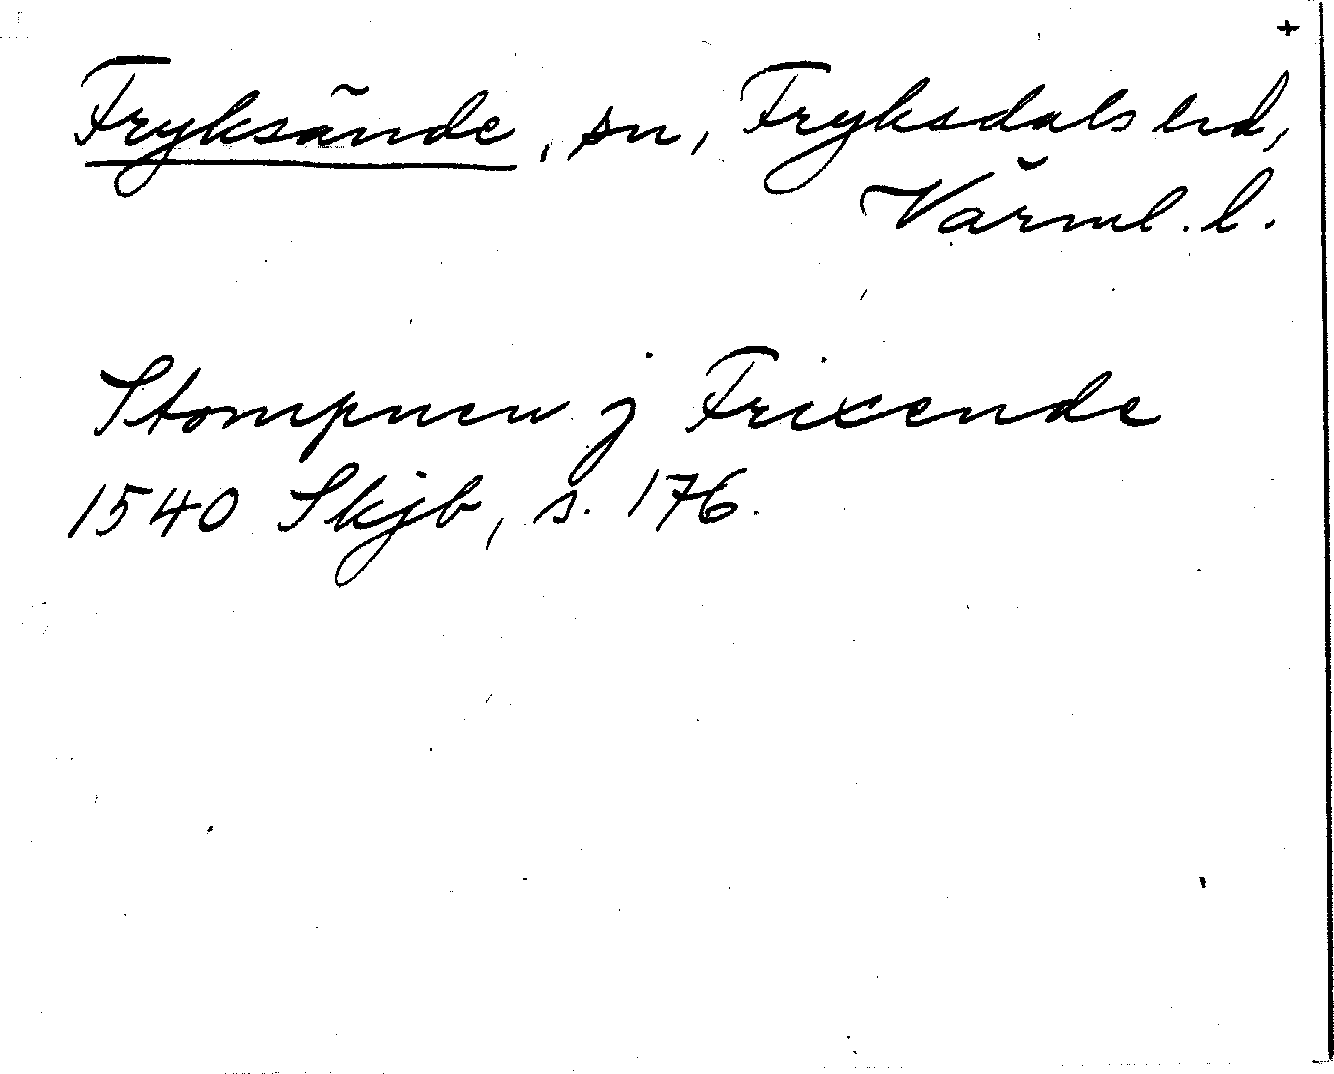 +
Fryksände, sn, Fryksdals hd,
Värml. l.
Stompnen j Frixende
1540 Skjb, s. 176.